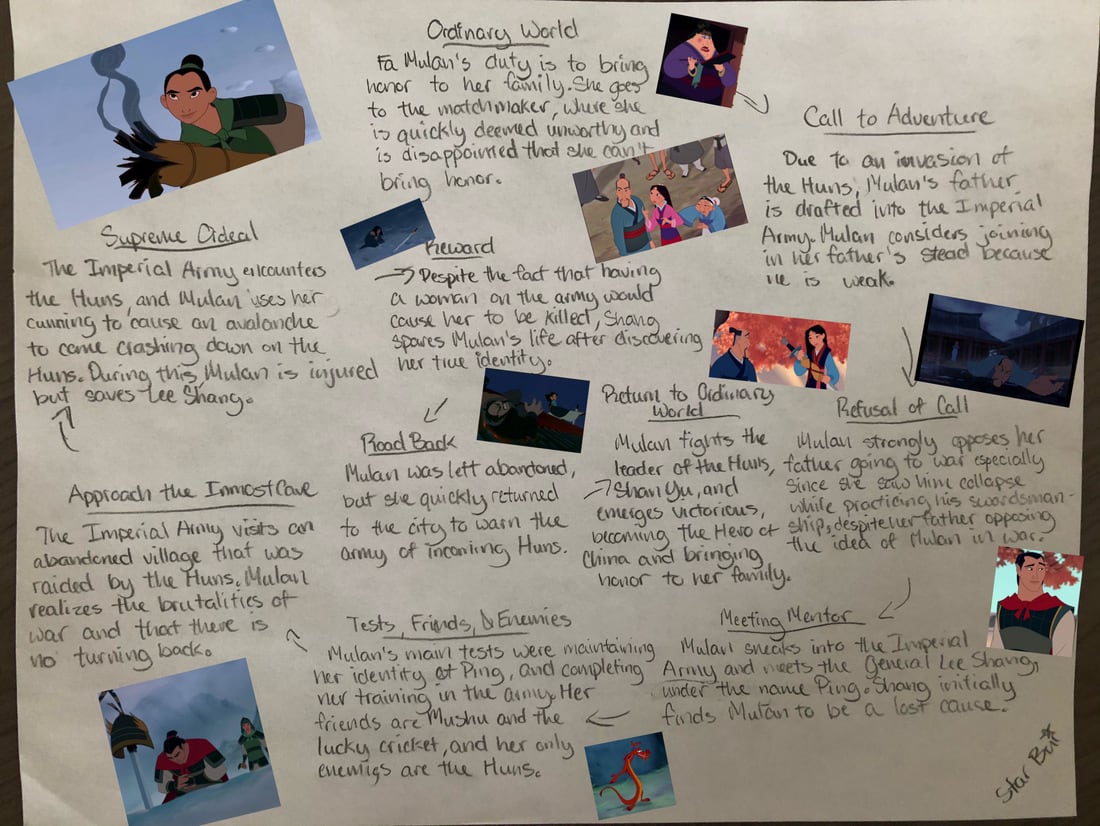 Ordinary World
Fa Mulan's duty is to bring
honor to her family. She goes
to the matchmaker, where she
is quickly deemed unworthy and
is disappointed that she can't
bring honor.
Call to Adventure
Due to an invasion of
the Huns, Mulan's father
is drafted into the Imperial
Army. Mulan considers joining
in her father's stead because
he is weak.
Refusal of Call
Mulan strongly opposes her
father going to war especially
since she saw him collapse
while practicing his swordsman-
ship, despite her father opposing
the idea of Mulan in war.
Meeting Mentor
Mulan sneaks into the Imperial
Army and meets the General Lee Shang,
under the name Ping. Shang initially
finds Mulan to be a lost cause.
Tests, Friends, & Enemies
Mulan's main tests were maintaining
her identity of Ping, and completing
her training in the army. Her
friends are Mushu and the
lucky cricket, and her only
enemies are the Huns.
Approach the Inmost Cave
The Imperial Army visits an
abandoned village that was
raided by the Huns. Mulan
realizes the brutalities of
war and that there is
no turning back.
Supreme Ordeal
The Imperial Army encounters
the Huns, and Mulan uses her
cunning to cause an avalanche
to come crashing down on the
Huns. During this Mulan is injured
but saves Lee Shang.
Reward
Despite the fact that having
a woman on the army would
cause her to be killed, Shang
spares Mulan's life after discovering
her true identity.
Road Back
Mulan was left abandoned,
but she quickly returned
to the city to warn the
army of incoming Huns.
Return to Ordinary
World
Mulan fights the
leader of the Huns,
Shan Yu, and
emerges victorious,
becoming the Hero of
China and bringing
honor to her family.
Star